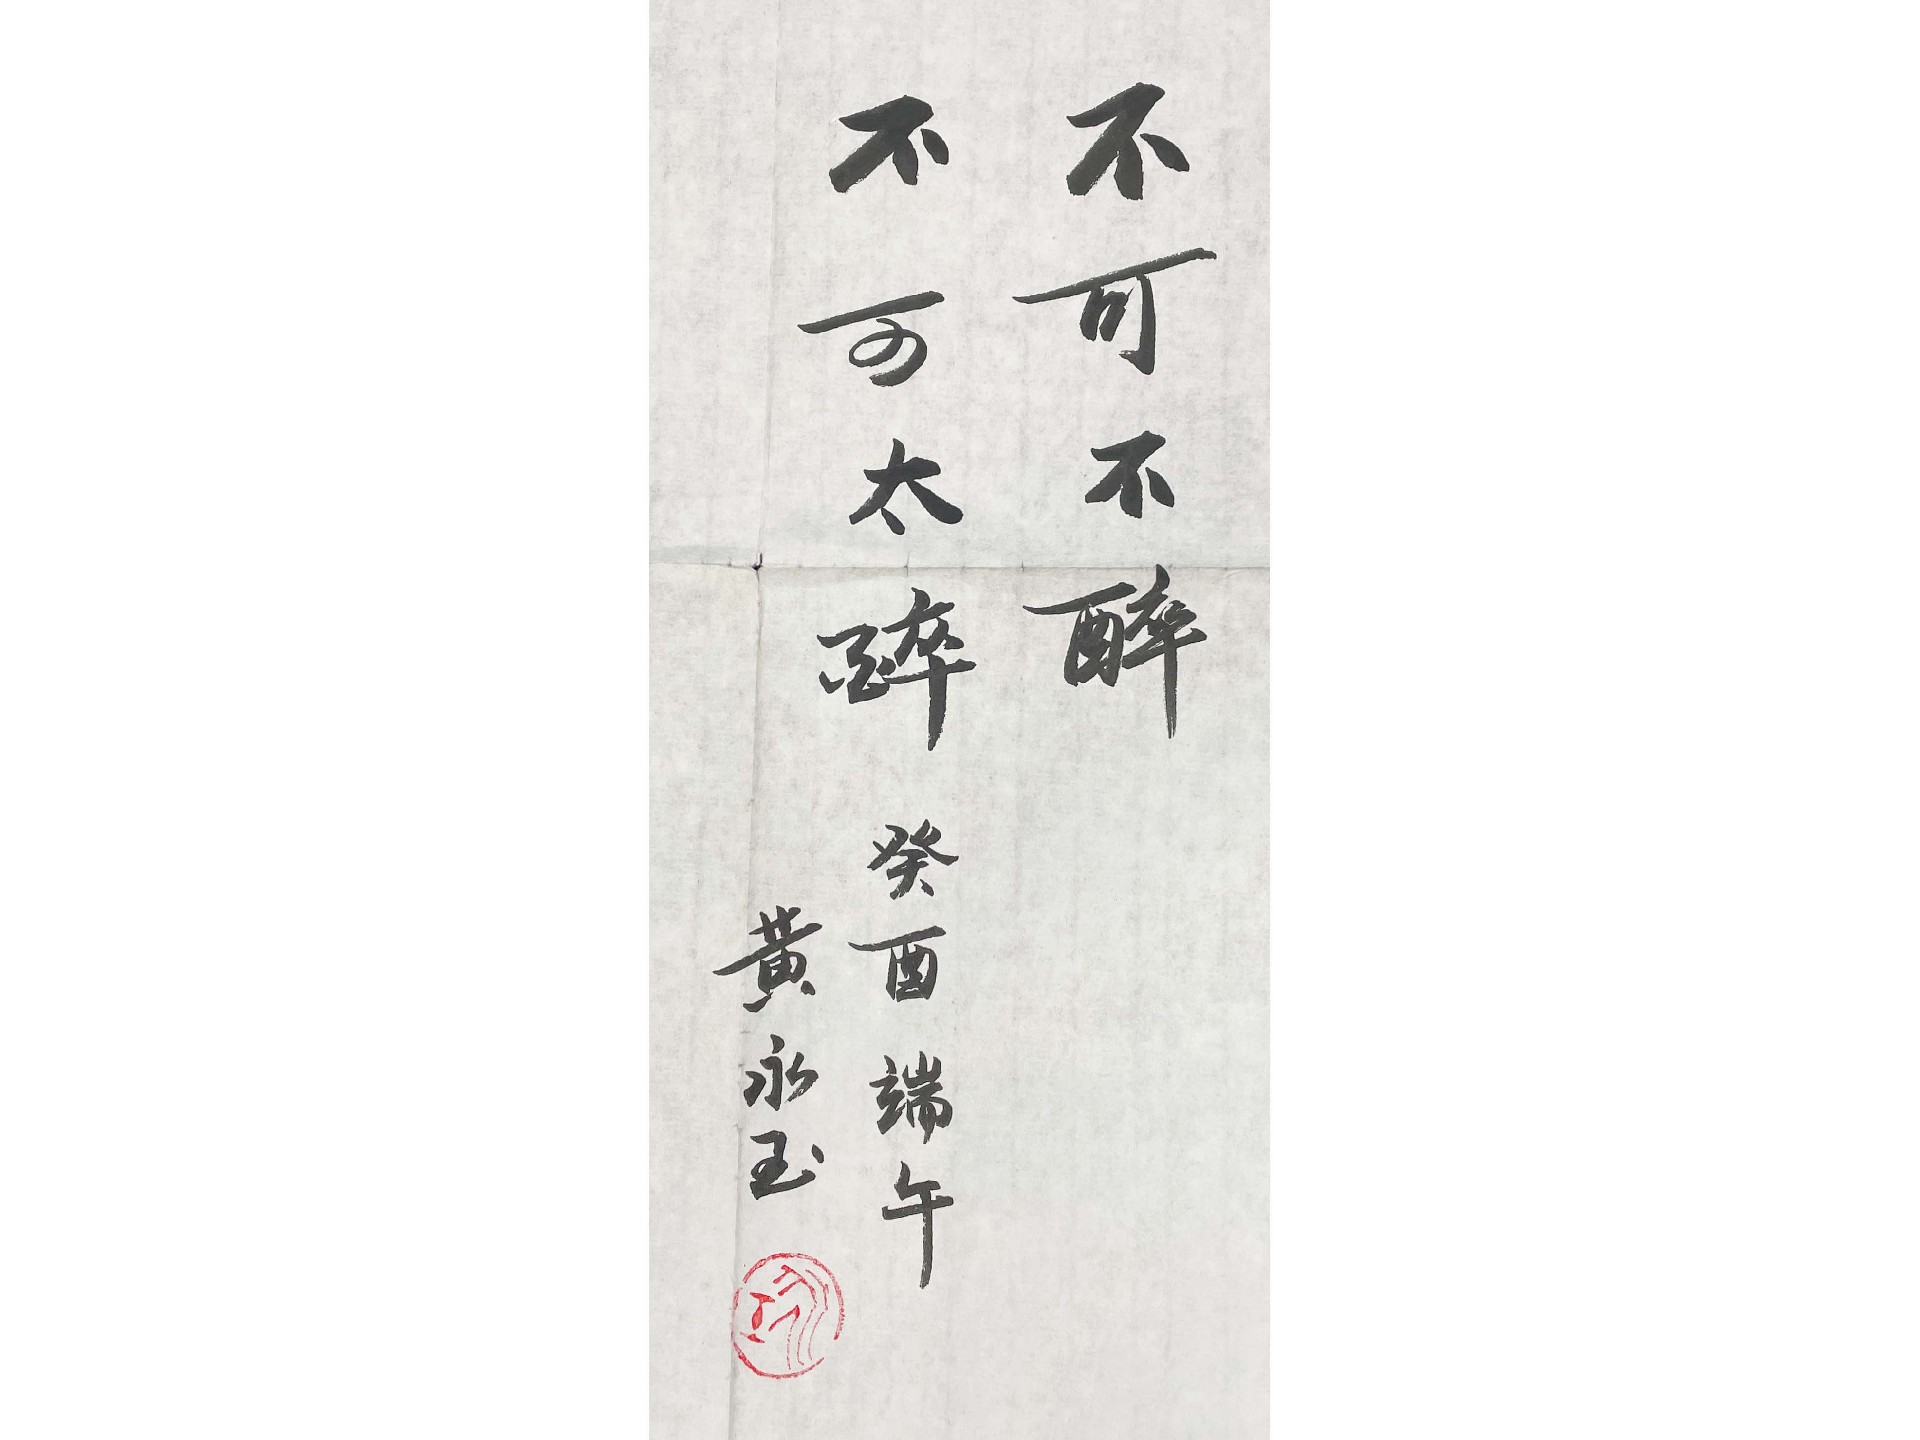 不可不醉
不可太醉 癸酉端午
黃永玉